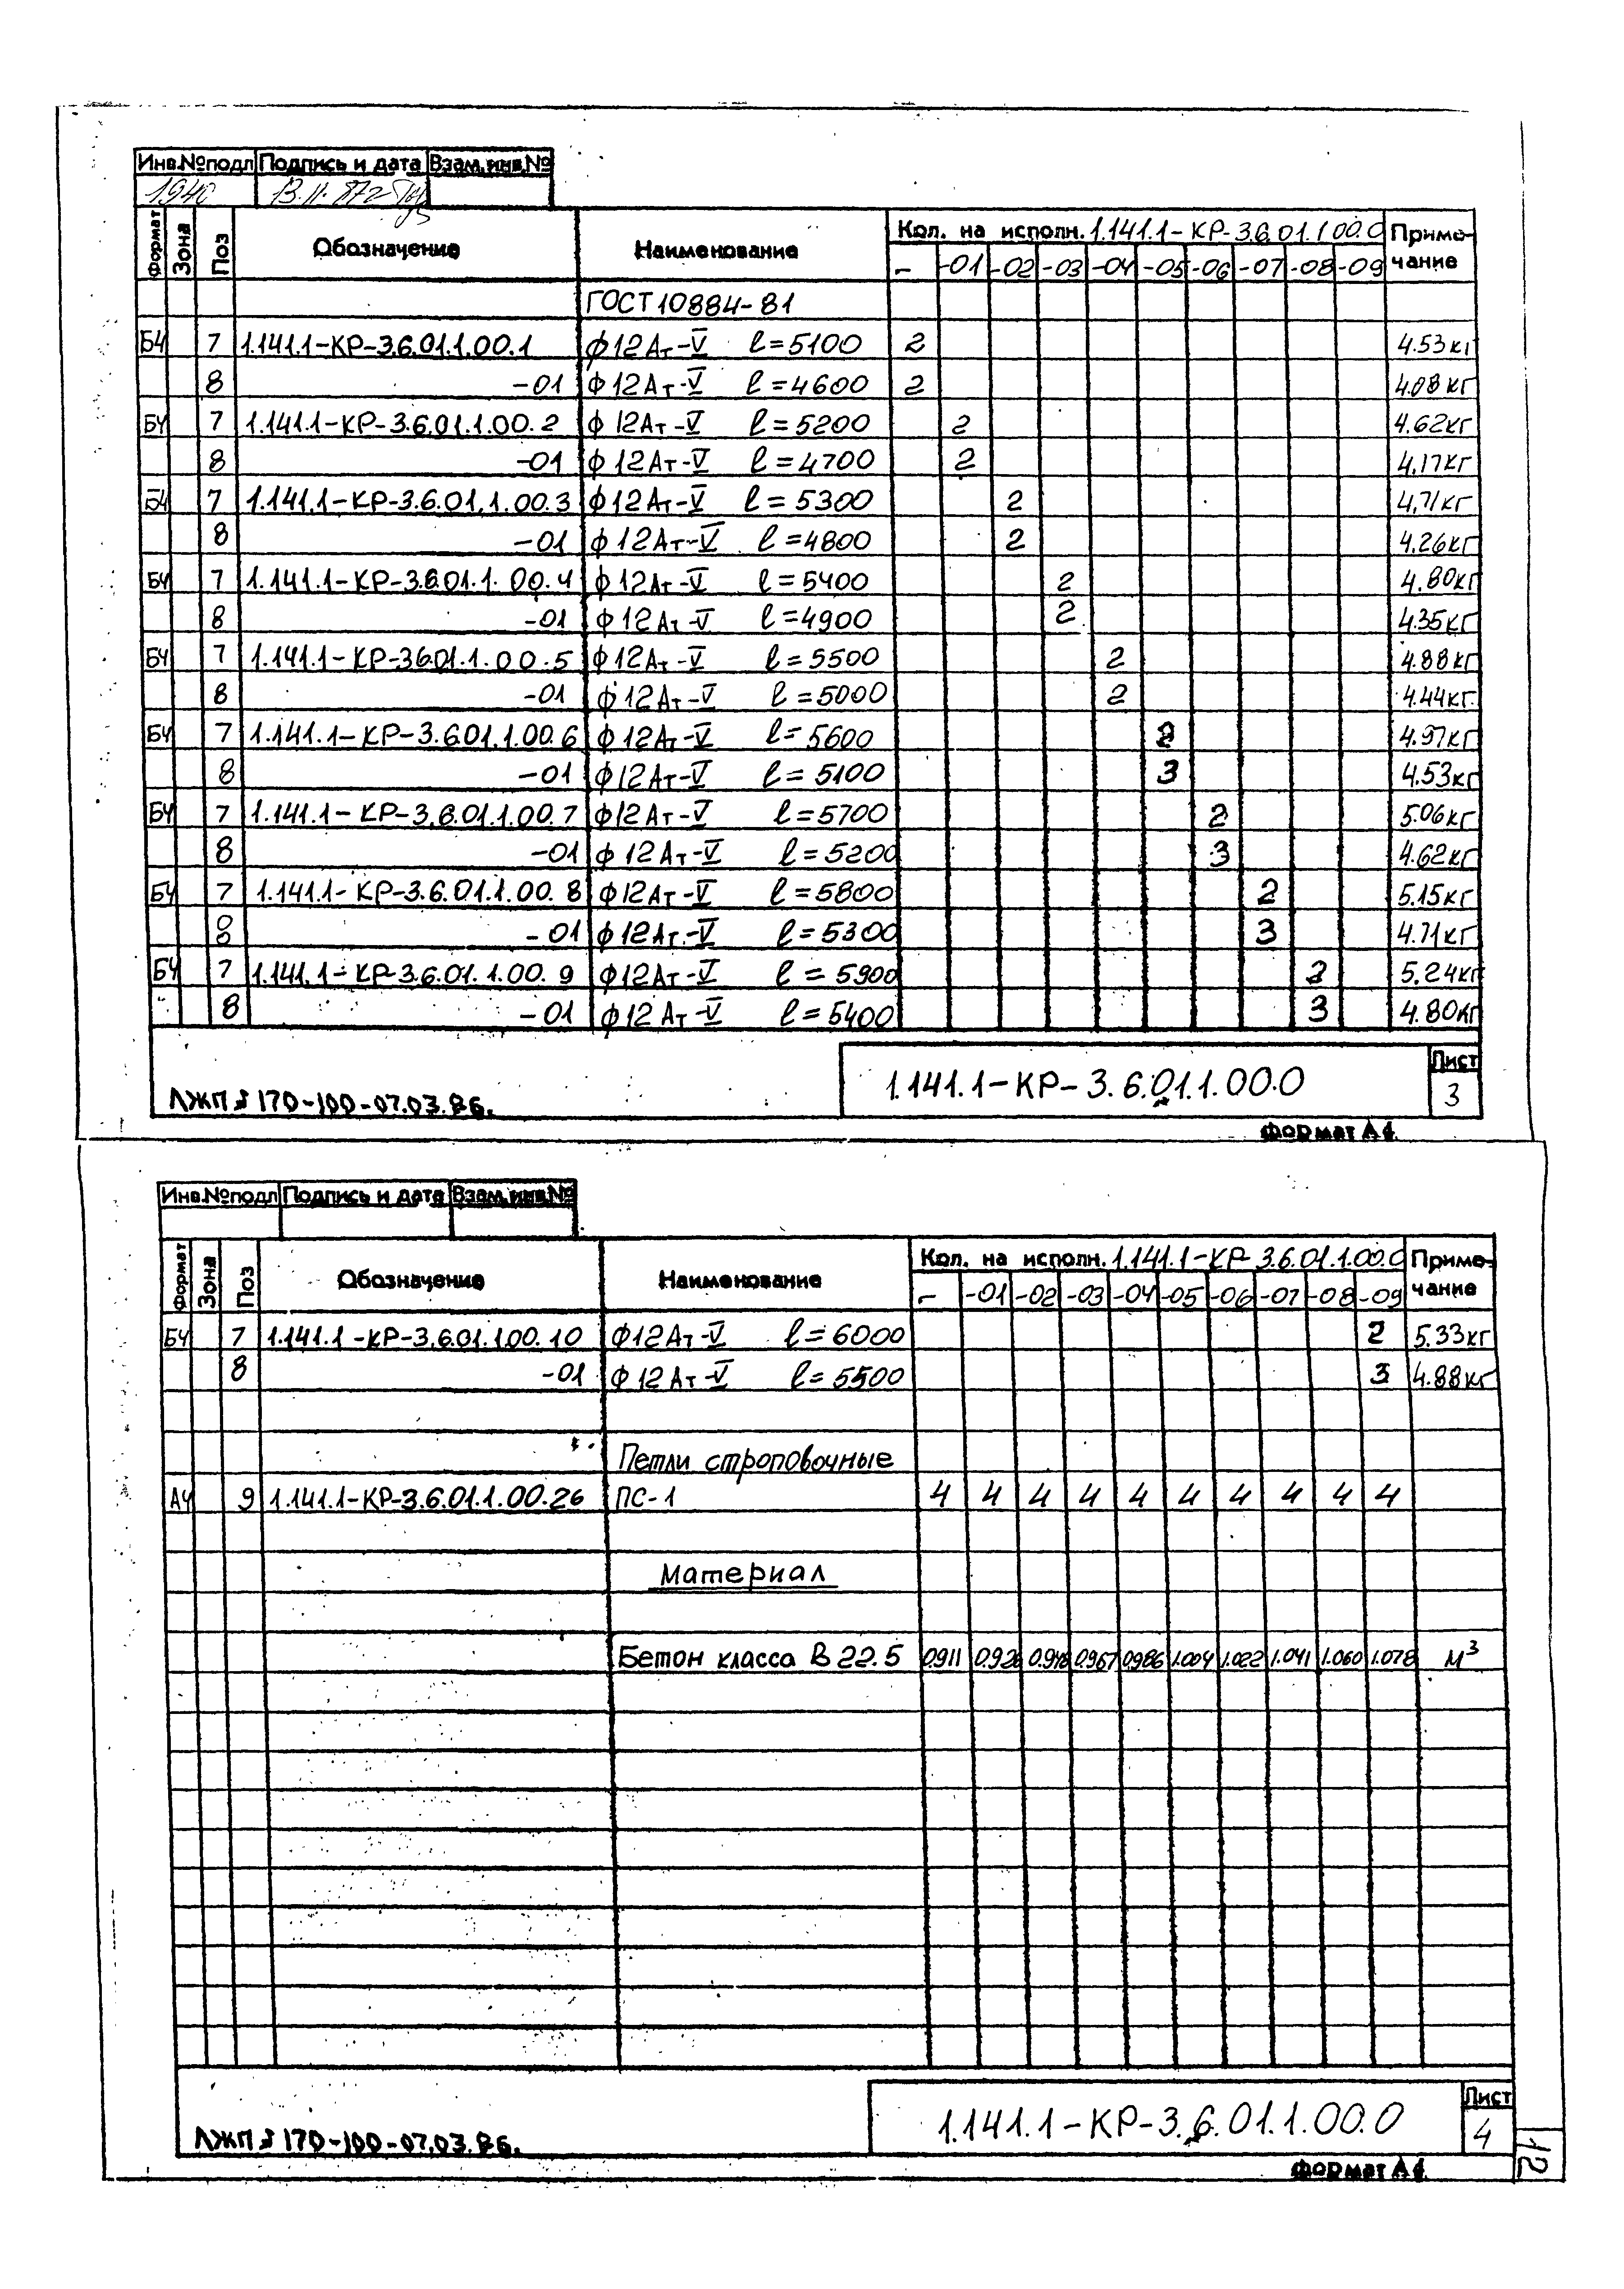 Инв.№подл Подпись и дата Взам.инв.№
1940 13.11.87г
Формат Зона Поз Обозначение Наименование Кол. на исполн. 1.141.1-КР-3.6.01.1.00.0 Приме-чание
- -01 -02 -03 -04 -05 -06 -07 -08 -09
ГОСТ 10884-81
БЧ 7 1.141.1-КР-3.6.01.1.00.1 ф12Ат-V l=5100 2 4.53кг
8 -01 ф12Ат-V l=4600 2 4.08кг
БЧ 7 1.141.1-КР-3.6.01.1.00.2 ф12Ат-V l=5200 2 4.62кг
8 -01 ф12Ат-V l=4700 2 4.17кг
БЧ 7 1.141.1-КР-3.6.01.1.00.3 ф12Ат-V l=5300 2 4.71кг
8 -01 ф12Ат-V l=4800 2 4.26кг
БЧ 7 1.141.1-КР-3.6.01.1.00.4 ф12Ат-V l=5400 2 4.80кг
8 -01 ф12Ат-V l=4900 2 4.35кг
БЧ 7 1.141.1-КР-3.6.01.1.00.5 ф12Ат-V l=5500 2 4.88кг
8 -01 ф12Ат-V l=5000 2 4.44кг
БЧ 7 1.141.1-КР-3.6.01.1.00.6 ф12Ат-V l=5600 2 4.97кг
8 -01 ф12Ат-V l=5100 3 4.53кг
БЧ 7 1.141.1-КР-3.6.01.1.00.7 ф12Ат-V l=5700 2 5.06кг
8 -01 ф12Ат-V l=5200 3 4.62кг
БЧ 7 1.141.1-КР-3.6.01.1.00.8 ф12Ат-V l=5800 2 5.15кг
8 -01 ф12Ат-V l=5300 3 4.71кг
БЧ 7 1.141.1-КР-3.6.01.1.00.9 ф12Ат-V l=5900 2 5.24кг
8 -01 ф12Ат-V l=5400 3 4.80кг
ЛЖП з 170-100-07.03.86. 1.141.1-КР-3.6.01.1.00.0 Лист 3
Формат А4
Инв.№подл Подпись и дата Взам.инв.№
Формат Зона Поз Обозначение Наименование Кол. на исполн. 1.141.1-КР-3.6.01.1.00.0 Приме-чание
- -01 -02 -03 -04 -05 -06 -07 -08 -09
БЧ 7 1.141.1-КР-3.6.01.1.00.10 ф12Ат-V l=6000 2 5.33кг
8 -01 ф12Ат-V l=5500 3 4.88кг
Петли строповочные
А4 9 1.141.1-КР-3.6.01.1.00.26 ПС-1 4 4 4 4 4 4 4 4 4 4
Материал
Бетон класса В 22.5 0.911 0.926 0.948 0.967 0.986 1.004 1.022 1.041 1.060 1.078 м³
ЛЖП з 170-100-07.03.86. 1.141.1-КР-3.6.01.1.00.0 Лист 4
Формат А4
12